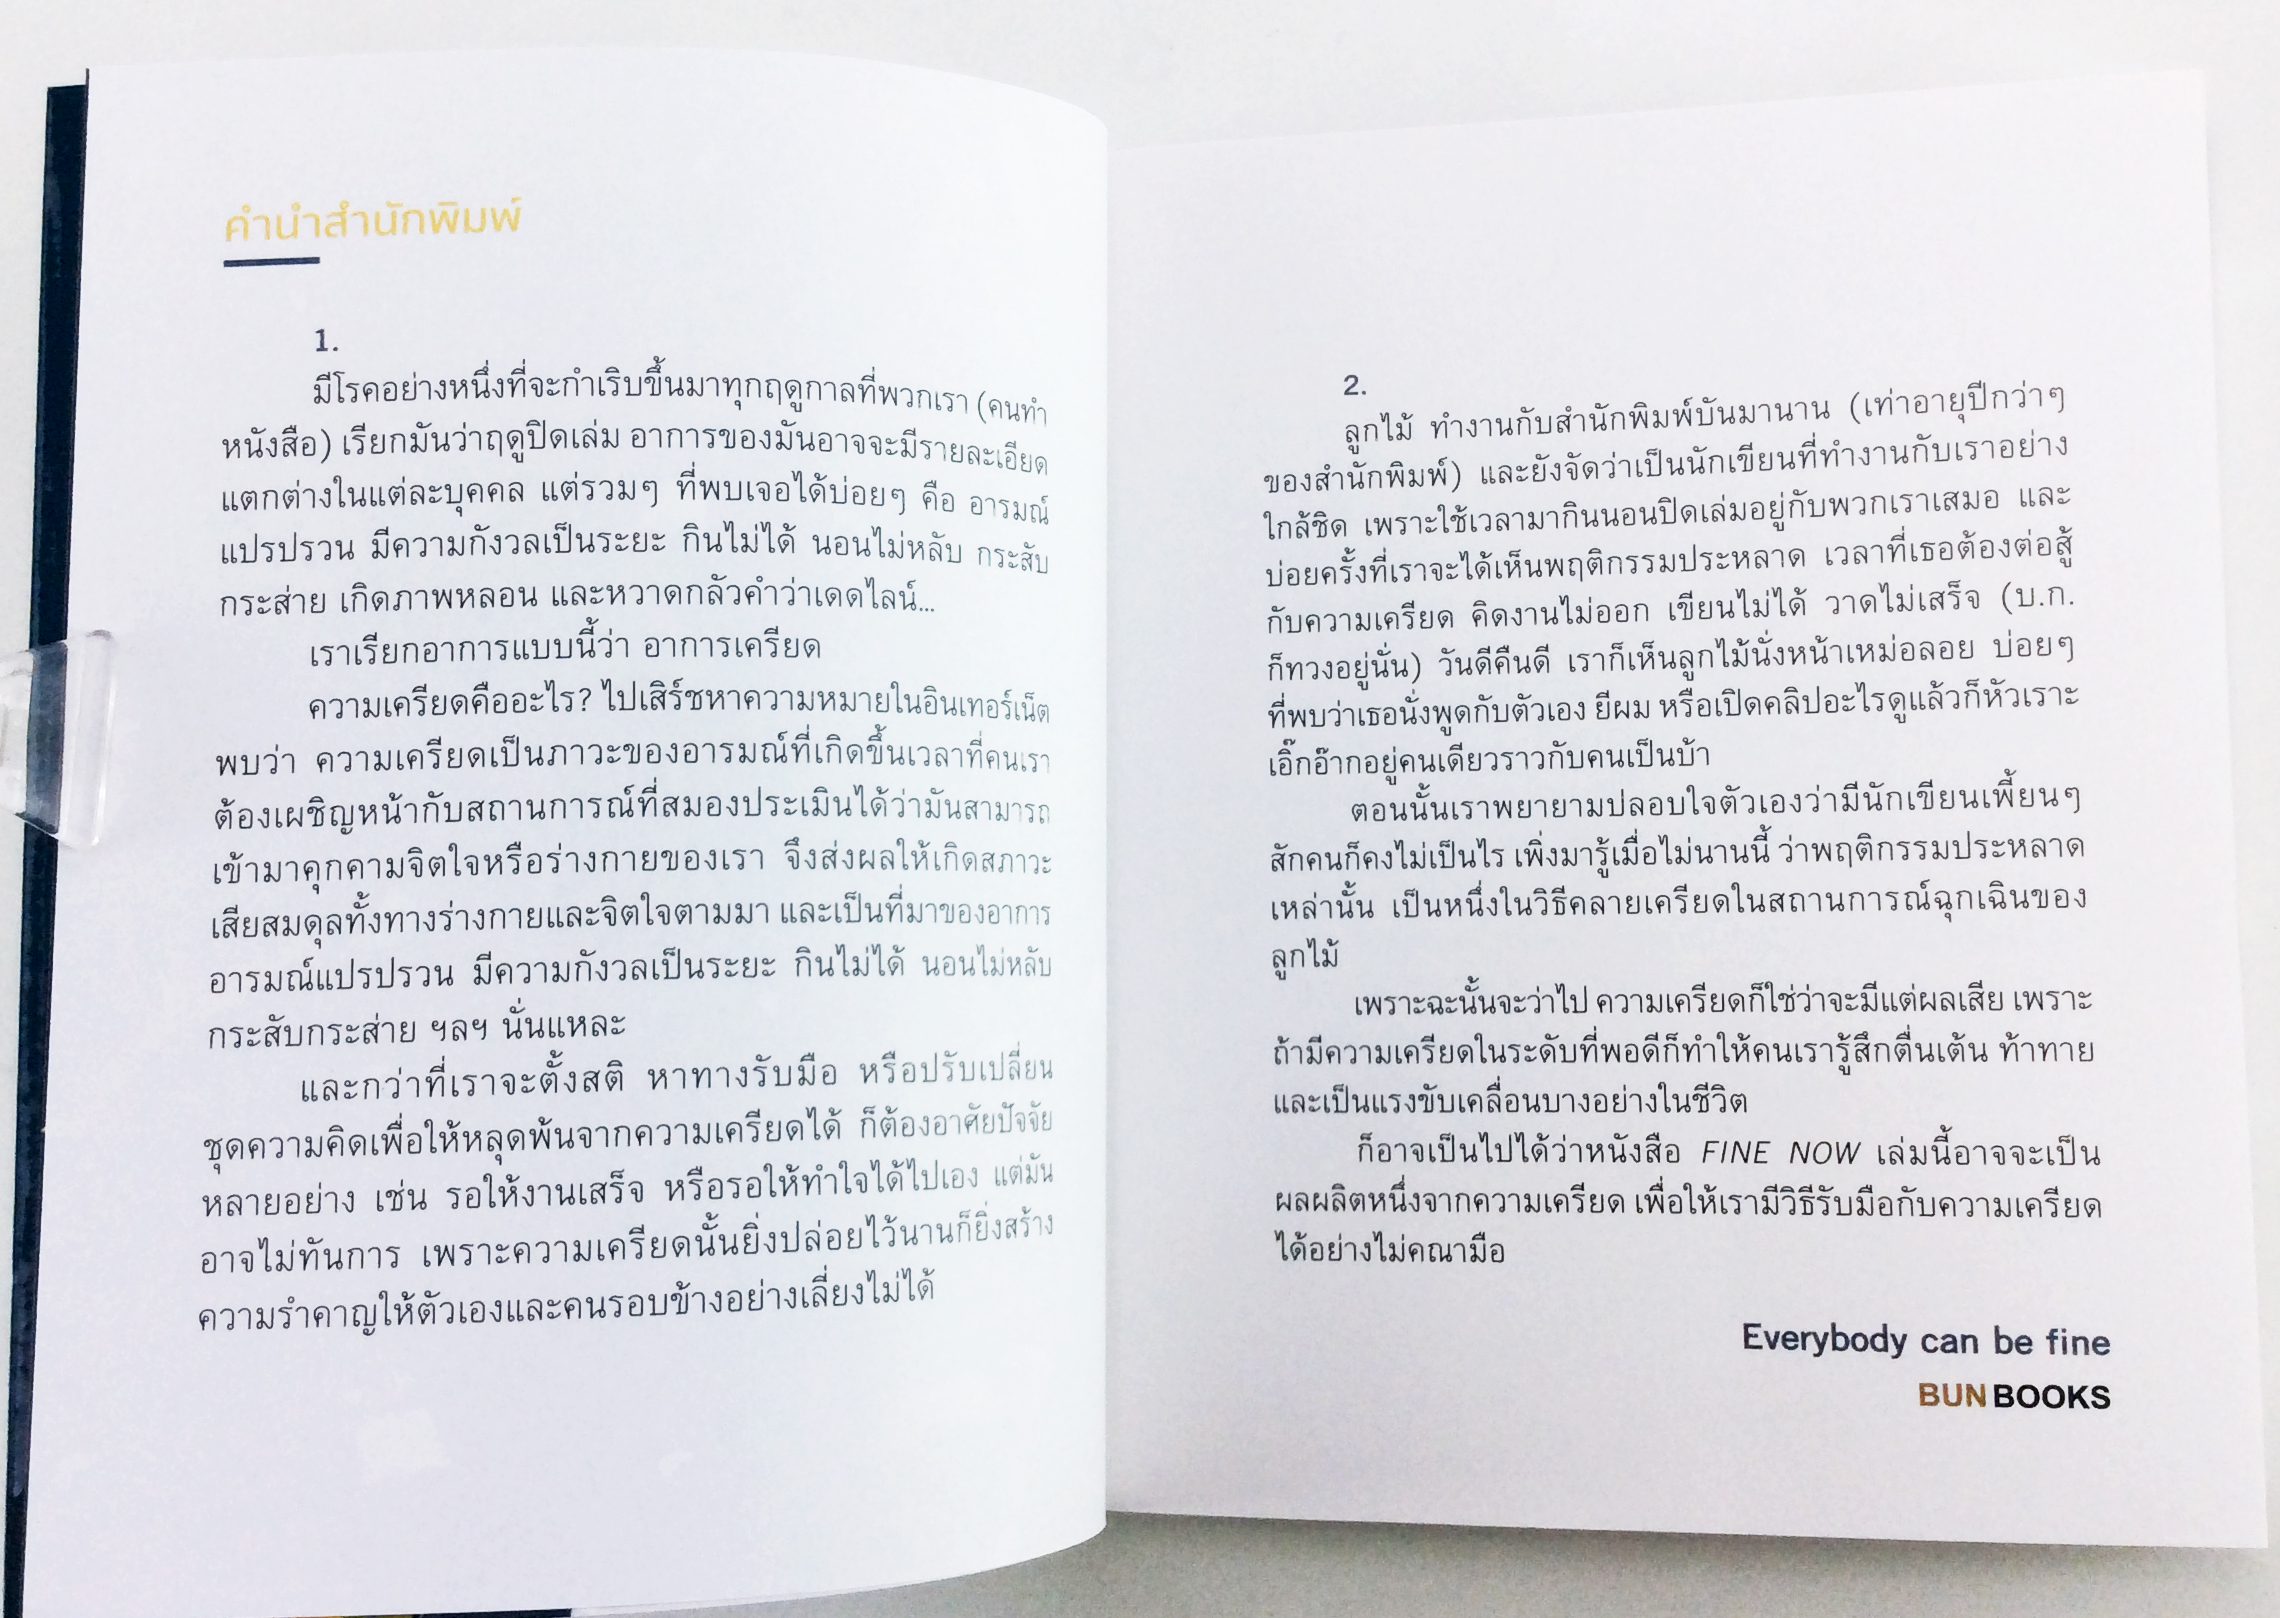 คำนำสำนักพิมพ์
1.
มีโรคอย่างหนึ่งที่จะกำเริบขึ้นมาทุกฤดูกาลที่พวกเรา (คนทำ
หนังสือ) เรียกมันว่าฤดูปิดเล่ม อาการของมันอาจจะมีรายละเอียด
แตกต่างในแต่ละบุคคล แต่รวมๆ ที่พบเจอได้บ่อยๆ คือ อารมณ์
แปรปรวน มีความกังวลเป็นระยะ กินไม่ได้ นอนไม่หลับ กระสับ
กระส่าย เกิดภาพหลอน และหวาดกลัวคำว่าเดดไลน์...
เราเรียกอาการแบบนี้ว่า อาการเครียด
ความเครียดคืออะไร? ไปเสิร์ชหาความหมายในอินเทอร์เน็ต
พบว่า ความเครียดเป็นภาวะของอารมณ์ที่เกิดขึ้นเวลาที่คนเรา
ต้องเผชิญหน้ากับสถานการณ์ที่สมองประเมินได้ว่ามันสามารถ
เข้ามาคุกคามจิตใจหรือร่างกายของเรา จึงส่งผลให้เกิดสภาวะ
เสียสมดุลทั้งทางร่างกายและจิตใจตามมา และเป็นที่มาของอาการ
อารมณ์แปรปรวน มีความกังวลเป็นระยะ กินไม่ได้ นอนไม่หลับ
กระสับกระส่าย ฯลฯ นั่นแหละ
และกว่าที่เราจะตั้งสติ หาทางรับมือ หรือปรับเปลี่ยน
ชุดความคิดเพื่อให้หลุดพ้นจากความเครียดได้ ก็ต้องอาศัยปัจจัย
หลายอย่าง เช่น รอให้งานเสร็จ หรือรอให้ทำใจได้ไปเอง แต่มัน
อาจไม่ทันการ เพราะความเครียดนั้นยิ่งปล่อยไว้นานก็ยิ่งสร้าง
ความรำคาญให้ตัวเองและคนรอบข้างอย่างเลี่ยงไม่ได้
2.
ลูกไม้ ทำงานกับสำนักพิมพ์บันมานาน (เท่าอายุปีกว่าๆ
ของสำนักพิมพ์) และยังจัดว่าเป็นนักเขียนที่ทำงานกับเราอย่าง
ใกล้ชิด เพราะใช้เวลามากินนอนปิดเล่มอยู่กับพวกเราเสมอ และ
บ่อยครั้งที่เราจะได้เห็นพฤติกรรมประหลาด เวลาที่เธอต้องต่อสู้
กับความเครียด คิดงานไม่ออก เขียนไม่ได้ วาดไม่เสร็จ (บ.ก.
ก็ทวงอยู่นั่น) วันดีคืนดี เราก็เห็นลูกไม้นั่งหน้าเหม่อลอย บ่อยๆ
ที่พบว่าเธอนั่งพูดกับตัวเอง ยีผม หรือเปิดคลิปอะไรดูแล้วก็หัวเราะ
เอิ๊กอ๊ากอยู่คนเดียวราวกับคนเป็นบ้า
ตอนนั้นเราพยายามปลอบใจตัวเองว่ามีนักเขียนเพี้ยนๆ
สักคนก็คงไม่เป็นไร เพิ่งมารู้เมื่อไม่นานนี้ ว่าพฤติกรรมประหลาด
เหล่านั้น เป็นหนึ่งในวิธีคลายเครียดในสถานการณ์ฉุกเฉินของ
ลูกไม้
เพราะฉะนั้นจะว่าไป ความเครียดก็ใช่ว่าจะมีแต่ผลเสีย เพราะ
ถ้ามีความเครียดในระดับที่พอดีก็ทำให้คนเรารู้สึกตื่นเต้น ท้าทาย
และเป็นแรงขับเคลื่อนบางอย่างในชีวิต
ก็อาจเป็นไปได้ว่าหนังสือ FINE NOW เล่มนี้อาจจะเป็น
ผลผลิตหนึ่งจากความเครียด เพื่อให้เรามีวิธีรับมือกับความเครียด
ได้อย่างไม่คณามือ
Everybody can be fine
BUNBOOKS